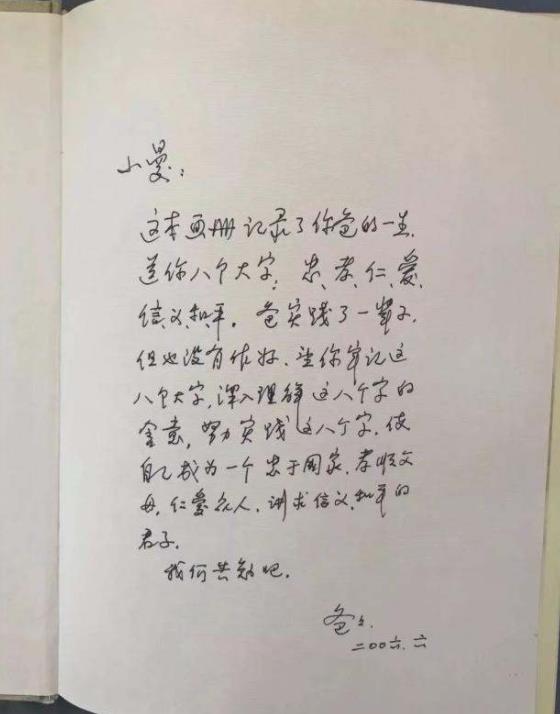 小曼：
这本画册记录了你爸的一生，
送你八个大字：忠、孝、仁、爱、
信、义、和、平。爸实践了一辈子，
但也没有作好，望你牢记这
八个大字，深入理解这八个字的
含意，努力实践这八个字，使
自己成为一个忠于国家，孝顺父
母，仁爱众人，讲求信义，和平的
君子。
我们共勉吧。
爸爸
二〇〇六.六